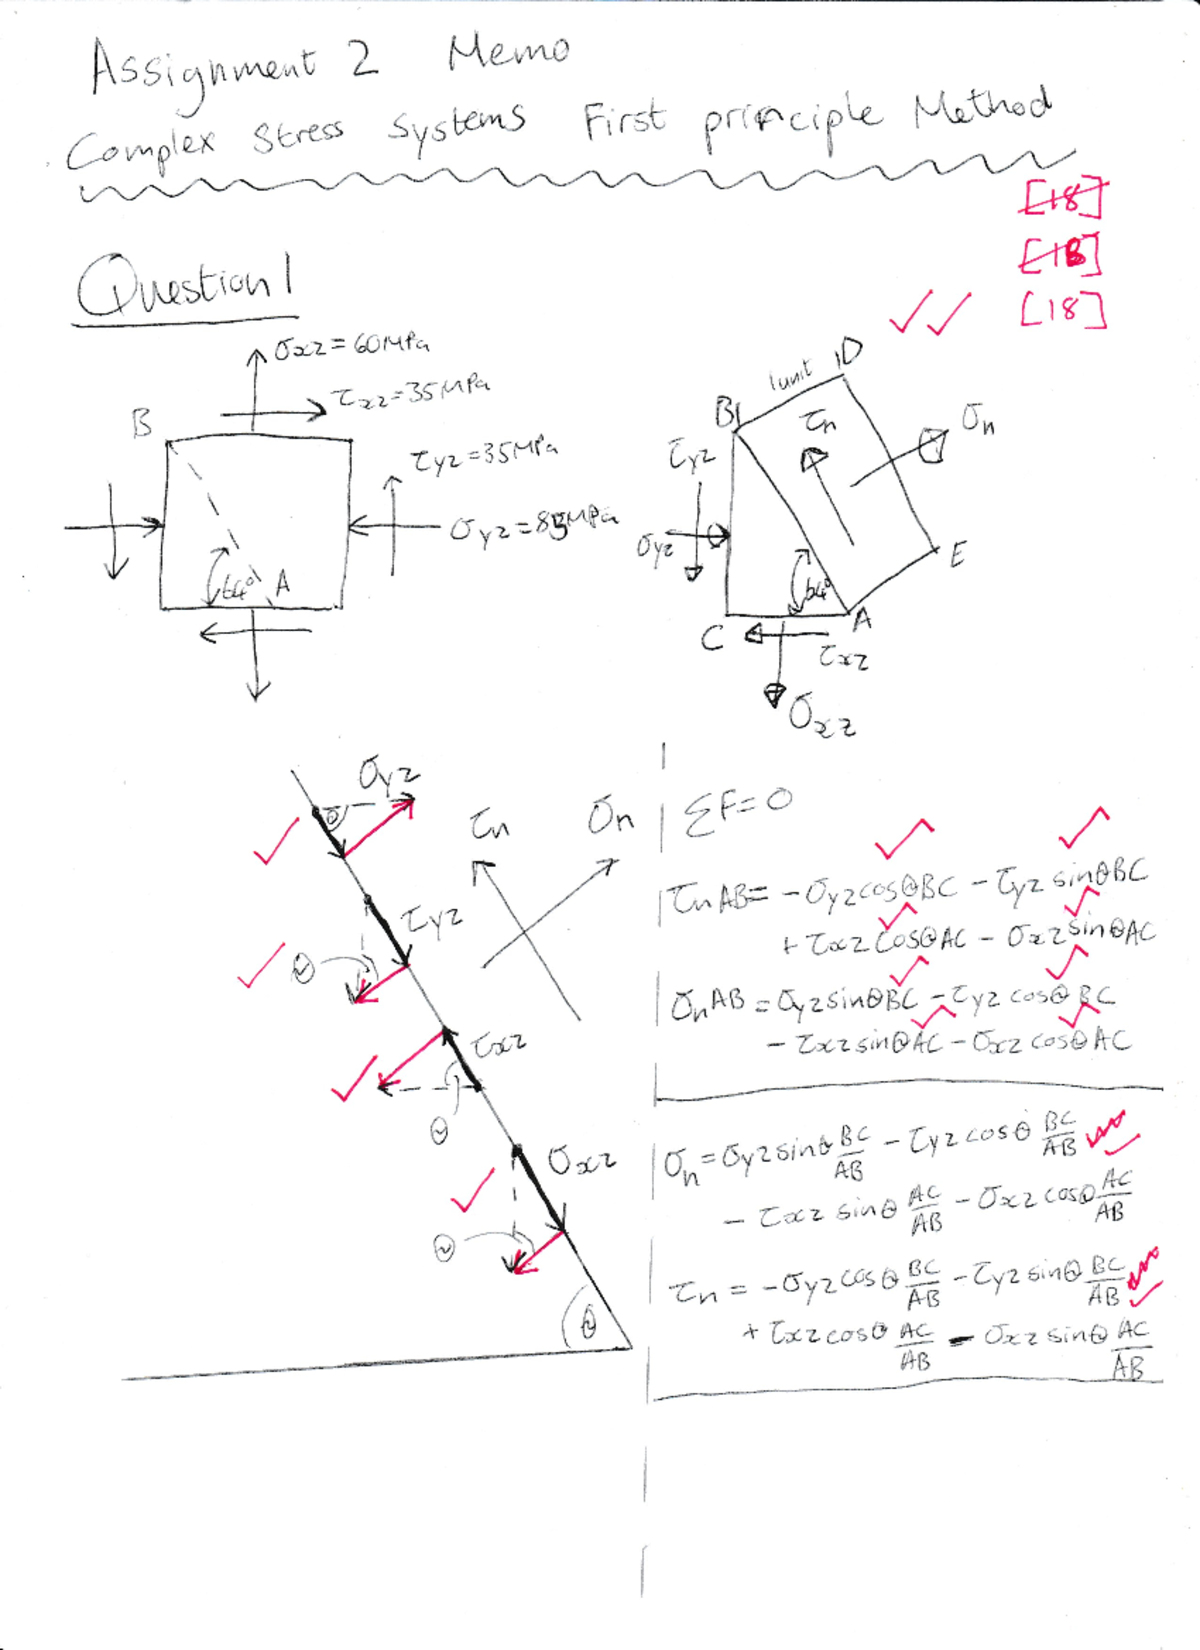 Assignment 2 Memo
Complex Stress Systems First principle Method
[18]
[18]
[18]
Question 1
σxz = 60MPa
τxz = 35MPa
B
τyz = 35MPa
σyz = 85MPa
64°
A
1unit
D
B
τn
σn
τyz
σyz
64°
E
C
A
τxz
σxz
σyz
θ
τn
σn
τyz
θ
τxz
θ
σxz
θ
θ
ΣF=0
τn AB = -σyz cosθ BC - τyz sinθ BC
+ τxz cosθ AC - σxz sinθ AC
σn AB = σyz sinθ BC - τyz cosθ BC
- τxz sinθ AC - σxz cosθ AC
σn = σyz sinθ BC/AB - τyz cosθ BC/AB
- τxz sinθ AC/AB - σxz cosθ AC/AB
τn = -σyz cosθ BC/AB - τyz sinθ BC/AB
+ τxz cosθ AC/AB - σxz sinθ AC/AB